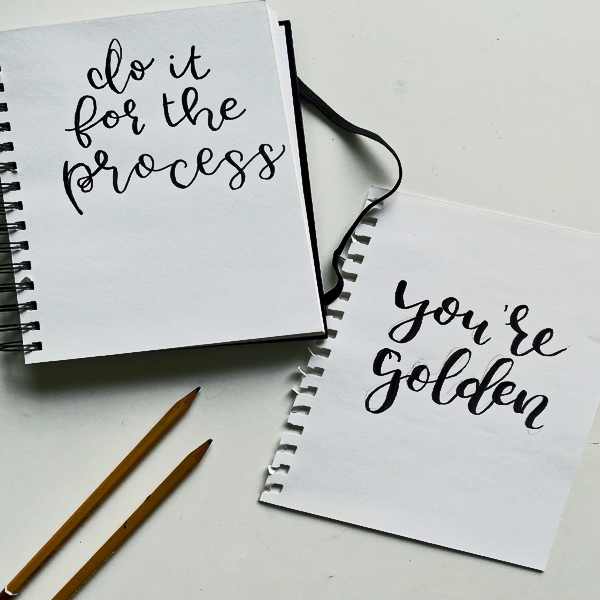 do it
for the
process
you're
golden